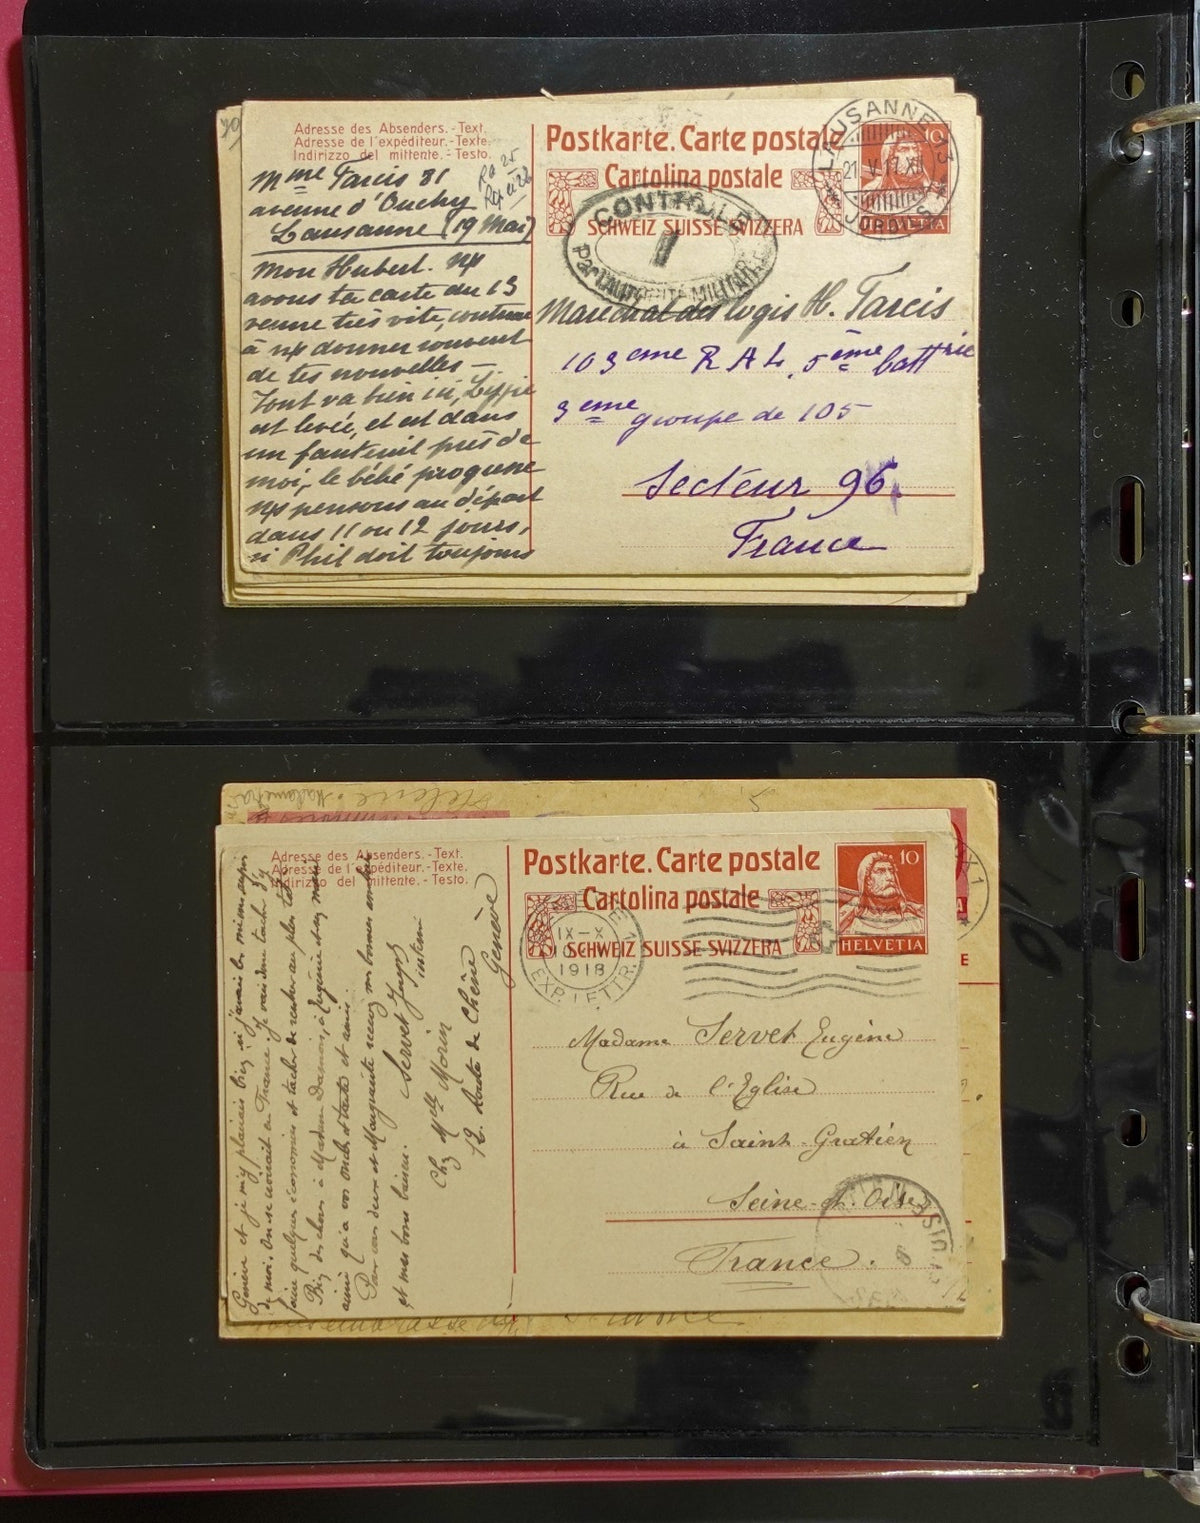 Adresse des Absenders.-Text.
Adresse de l'expéditeur.-Texte.
Indirizzo del mittente.-Testo.
Mme Tarcis 81
avenue d'Ouchy
Lausanne (19 Mai)
Mon Hubert. ns
avons ta carte du 13
venue très vite, continue
à ns donner souvent
de tes nouvelles —
Tout va bien ici,
est levée, et est dans
un fauteuil près de
moi, le bébé progresse
ns pensons au départ
dans 11 ou 12 jours,
si Phil doit toujours
Postkarte. Carte postale
Cartolina postale
SCHWEIZ SUISSE SVIZZERA
LAUSANNE 13
21.V.17.XII
10
HELVETIA
CONTRÔLE
1
Par L'AUTORITÉ MILITAIRE
Maréchal des logis H. Tarcis
103eme R A L. 5ème battrie
3eme groupe de 105
Secteur 96.
France
Adresse des Absenders.-Text.
Adresse de l'expéditeur.-Texte.
Indirizzo del mittente.-Testo.
Genève et je m'y plairais bien si j'avais les miens auprès
de moi. On se croirait en France. Je vais donc tacher d'y
faire quelques économies et tacher de rentrer au plus tôt.
Bien des choses à Madame Damois, à Eugénie et ses
ainsi qu'à vos oncles et tantes et amis.
Pour vous deux et Marguerite recevez mes bonnes
et mes bons baisers.
Servet Joseph
interné
Chz Melle Morin
12. Route de Chêne
Genève
Postkarte. Carte postale
Cartolina postale
SCHWEIZ SUISSE SVIZZERA
10
HELVETIA
IX-X
1918
EXP. LETTR.
Madame Servet Eugène
Rue de l'Eglise
à Saint-Gratien
Seine-et-Oise
France.